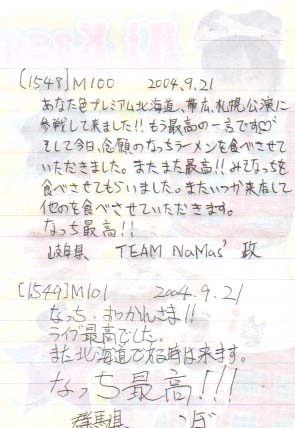 [1548] M100 2004.9.21
あなた色プレミアム北海道、帯広、札幌公演に
参戦して来ました!! もう最高の一言です
そして今日、念願のなっちラーメンを食べさせて
いただきました。またまた最高!! みそなっちを
食べさせてもらいました。またいつか来店して
他のを食べさせていただきます。
なっち最高!!
岐阜県 TEAM NaMas' 政
[1549] M101 2004.9.21
なっち・まっかんさま!!
ライブ最高でした。
また北海道で有る時は来ます。
なっち最高!!!
群馬県